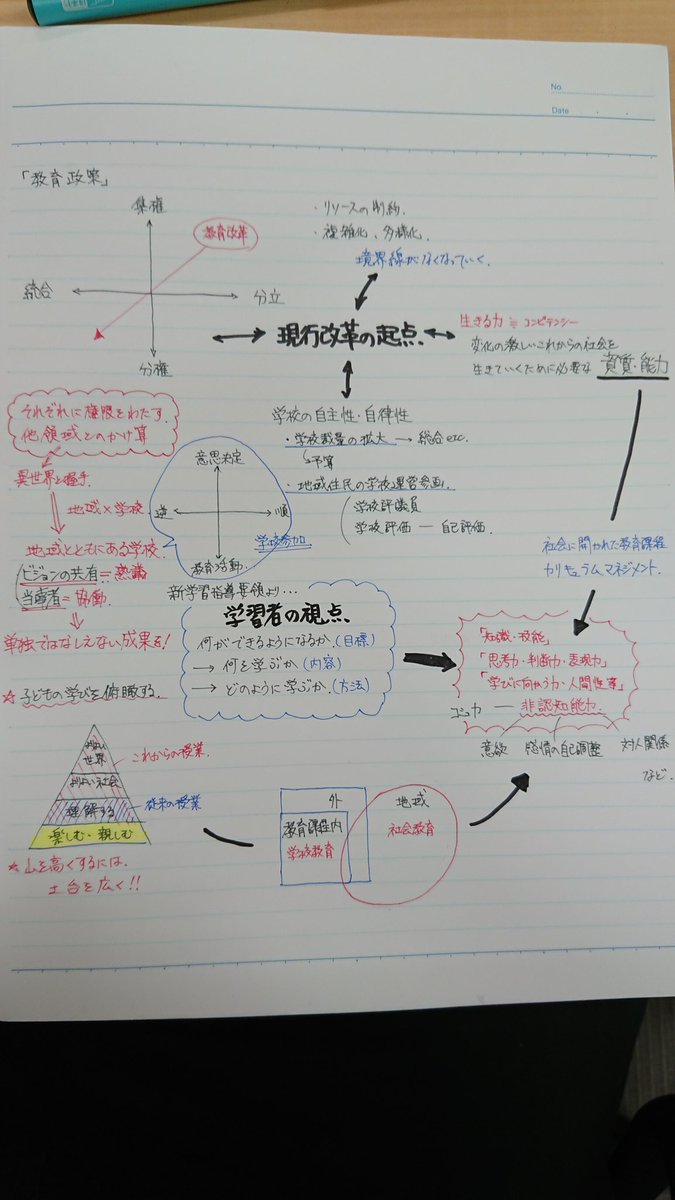 No.
Date
「教育政策」
集権
教育改革
統合
分立
分権
・リソースの制約.
・複雑化、多様化.
境界線がなくなっていく.
現行改革の起点.
生きる力≒コンピテンシー
変化の激しいこれからの社会を
生きていくために必要な 資質・能力
学校の自主性・自律性
・学校裁量の拡大 → 総合 etc.
↳予算
・地域住民の学校運営参画.
学校評議員
学校評価 — 自己評価.
それぞれに権限をわたす.
他領域とのかけ算
異世界と握手.
地域×学校
地域とともにある学校.
ビジョンの共有=熟議
当事者=協働.
単独ではなしえない成果を!
☆子どもの学びを俯瞰する.
意思決定
逆
順
学校参加
教育活動
新学習指導要領より…
学習者の視点.
何ができるようになるか.(目標)
→ 何を学ぶか (内容)
→ どのように学ぶか.(方法)
社会に開かれた教育課程
カリキュラムマネジメント.
「知識・技能」
「思考力・判断力・表現力」
「学びに向かう力・人間性等」
— 非認知能力.
意欲 感情の自己調整 対人関係
など.
よりよい
世界
よりよい社会
理解する
楽しむ・親しむ
これからの授業.
従来の授業
☆山を高くするには、
土台を広く!!
外
教育課程内
学校教育
地域
社会教育